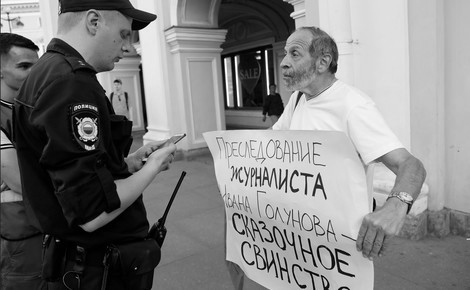 SALE
ПОЛИЦИЯ
ПРЕСЛЕДОВАНИЕ
ЖУРНАЛИСТА
ИВАНА ГОЛУНОВА –
СКАЗОЧНОЕ
СВИНСТВО